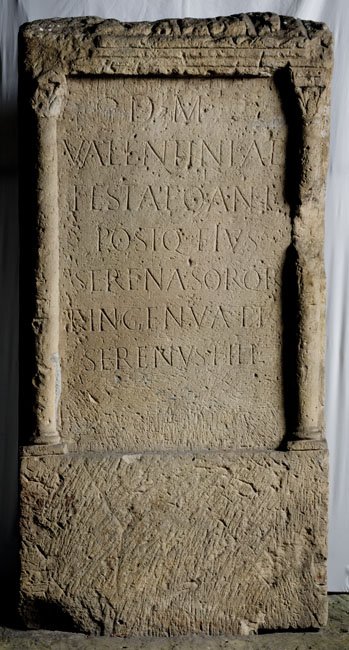 D M
VALENTINI AE
POSTQ EIVS
SERENA SOROR
INGENVA ET
SERENVS FILI